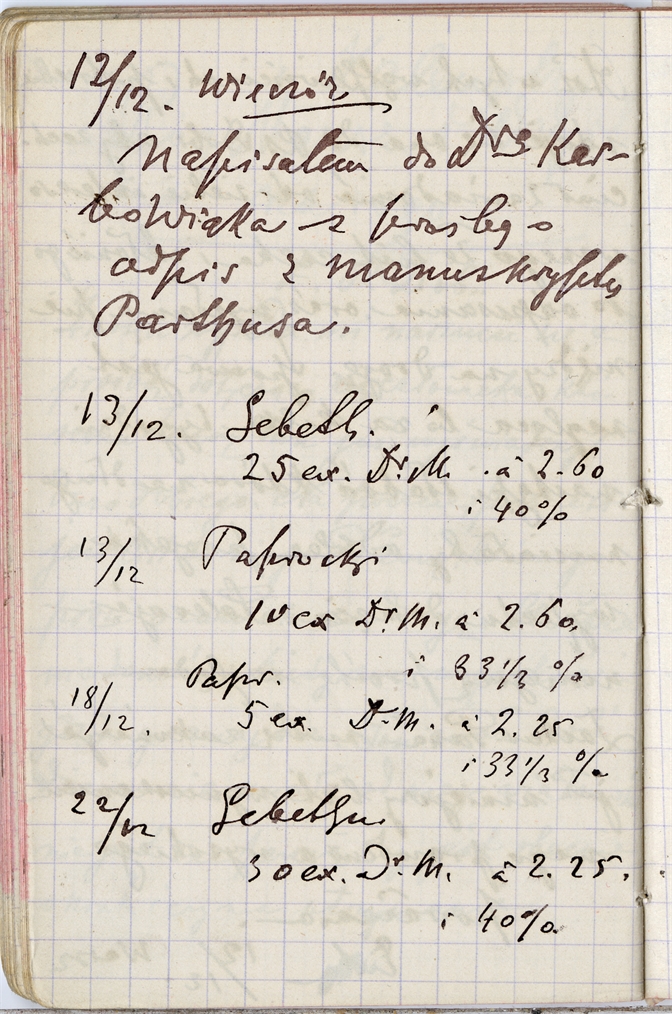 12/12. Wieczór
Napisałem do Dra Kar-
bowiaka z prośbą o
odpis z manuskryptu
Parthusa.
13/12. Gebeth.
25 ex. Dr. M. à 2.60
i 40%
13/12 Paprocki
10 ex Dr. M. à 2.60.
i 33 1/3 %
Papr.
18/12. 5 ex. Dr. M. à 2.25
i 33 1/3 %
22/12 Gebethn.
30 ex. Dr. M. à 2.25.
i 40%